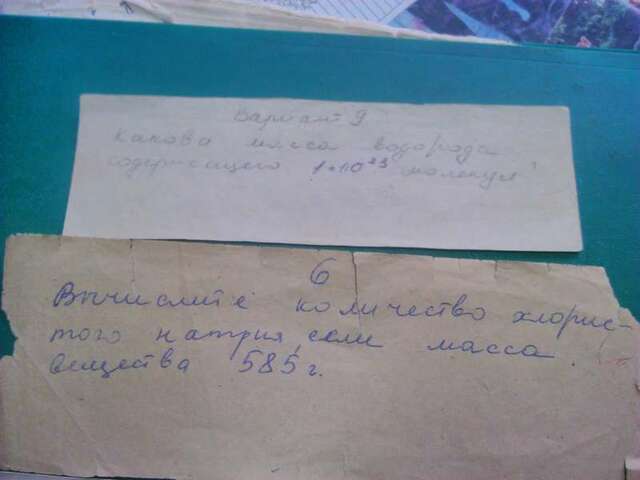 Вариант 9
Какова масса водорода
содержащего 1*10²³ молекул?
6
Вычислите количество хлорис-
того натрия, если масса
вещества 585 г.